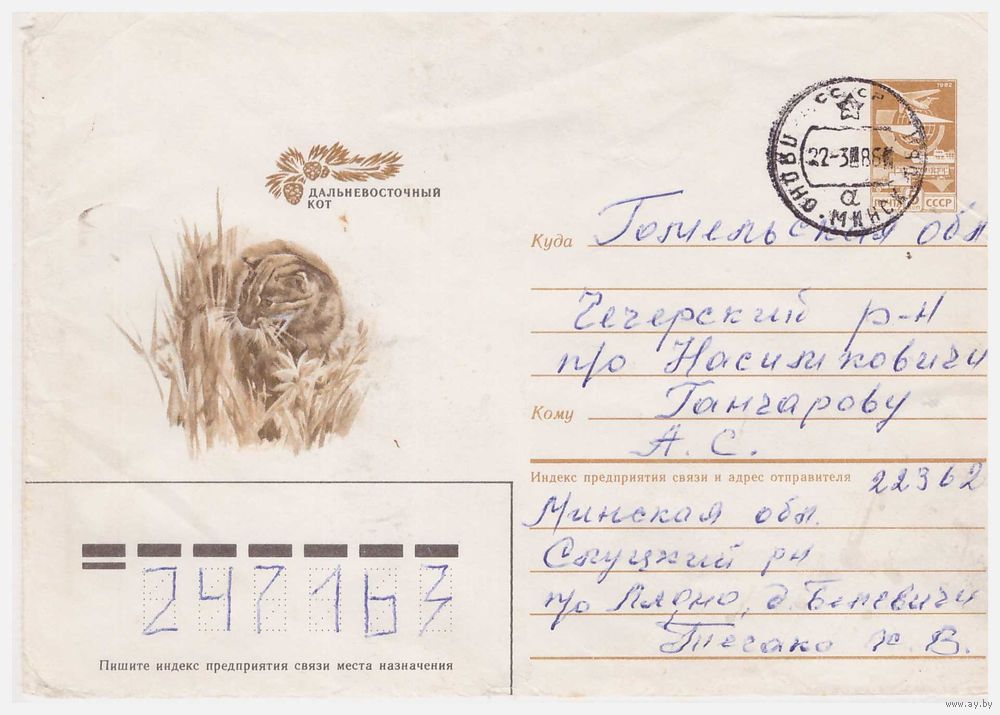 ДАЛЬНЕВОСТОЧНЫЙ
КОТ
1982
ПОЧТА СССР
СССР
ЛЯДНО
22-3 86
МИНСК
а
Куда Гомельская обл
Чечерский р-н
п/о Насимковичи
Кому Ганчарову
А. С.
Индекс предприятия связи и адрес отправителя 22362
Минская обл.
Слуцкий рн
п/о Лядно, д. Белевичи
Тесако Х. В.
247163
Пишите индекс предприятия связи места назначения
www.ay.by